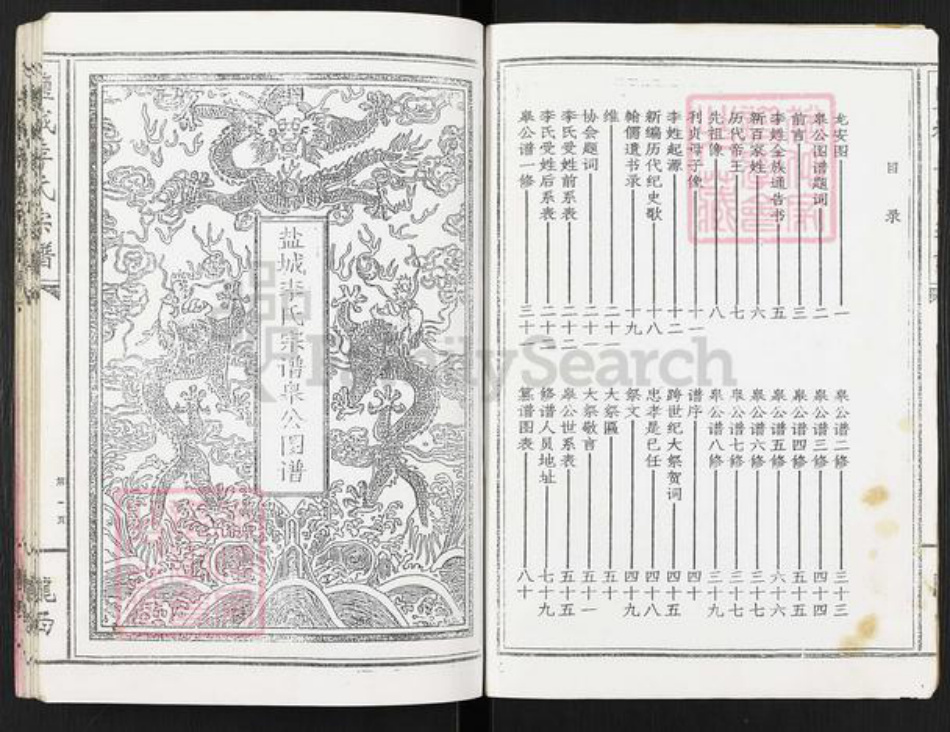 盐城李氏宗谱皋公图谱
第一页
目录
龙安图 一
皋公图谱题词 二
前言 三
李姓全族通告书 五
新百家姓 六
历代帝王 七
先祖像 八
利贞母子像 十一
李姓起源 十二
新编历代纪史歌 十八
翰儒遗书录 十九
维 二十
协会题词 二十一
李氏受姓前系表 二十二
李氏受姓后系表 二十二
皋公谱一修 三十
皋公谱二修 三十三
皋公谱三修 四十四
皋公谱四修 五十五
皋公谱五修 六十六
皋公谱六修 三十七
皋公谱七修 三十七
皋公谱八修 三十九
谱序 四十
跨世纪大祭贺词 四十五
忠孝是已任 四十八
祭文 四十九
大祭匾 五十
大祭敬言 五十一
皋公世系表 五十五
修谱人员地址 七十九
篡谱图表 八十
FamilySearch